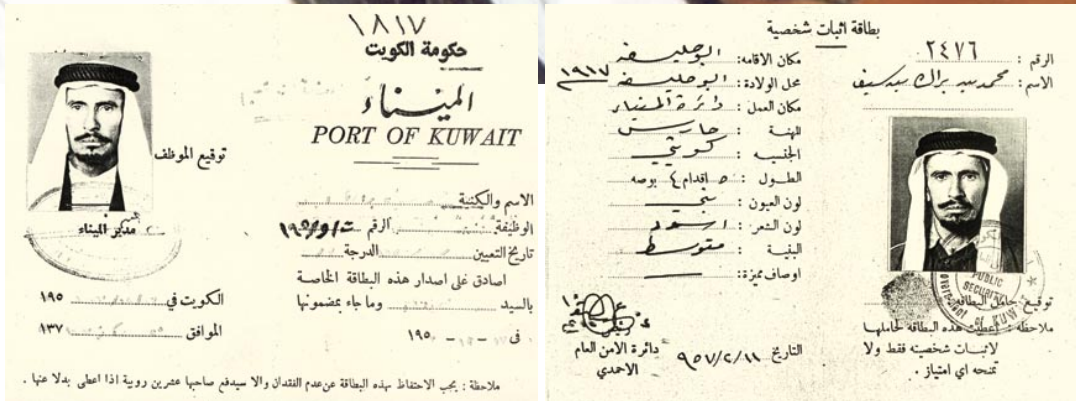 ١٨١٧
حكومة الكويت
الميناء
PORT OF KUWAIT
توقيع الموظف
مدير الميناء
الاسم والكنية
الوظيفة الرقم
تاريخ التعيين الدرجة
اصادق على اصدار هذه البطاقة الخاصة
بالسيد وما جاء بمضمونها
فى - - ١٩٥
الكويت في ١٩٥
الموافق ١٣٧
ملاحظة : يجب الاحتفاظ بهذه البطاقة عن عدم الفقدان والا سيدفع صاحبها عشرين روبية اذا اعطى بدلا عنها .
بطاقة اثبات شخصية
الرقم : ٢٤٧٦
الاسم : محمد سيد براك سيد سيف
مكان الاقامه : ابو حليفه
محل الولادة : ابو حليفه ١٩١٧
مكان العمل : دائرة الميناء
المهنة : حارس
الجنسيه : كويتي
الطول : ٥ اقدام ٤ بوصه
لون العيون : بني
لون الشعر : اسود
البنية : متوسط
اوصاف مميزة :
PUBLIC
SECURITY
توقيع حامل البطاقة
ملاحظة : اعطيت هذه البطاقه لحاملها
لاثبات شخصيته فقط ولا
تمنحه اي امتياز .
التاريخ ٩٥٧/٢/١١
دائرة الامن العام
الاحمدي